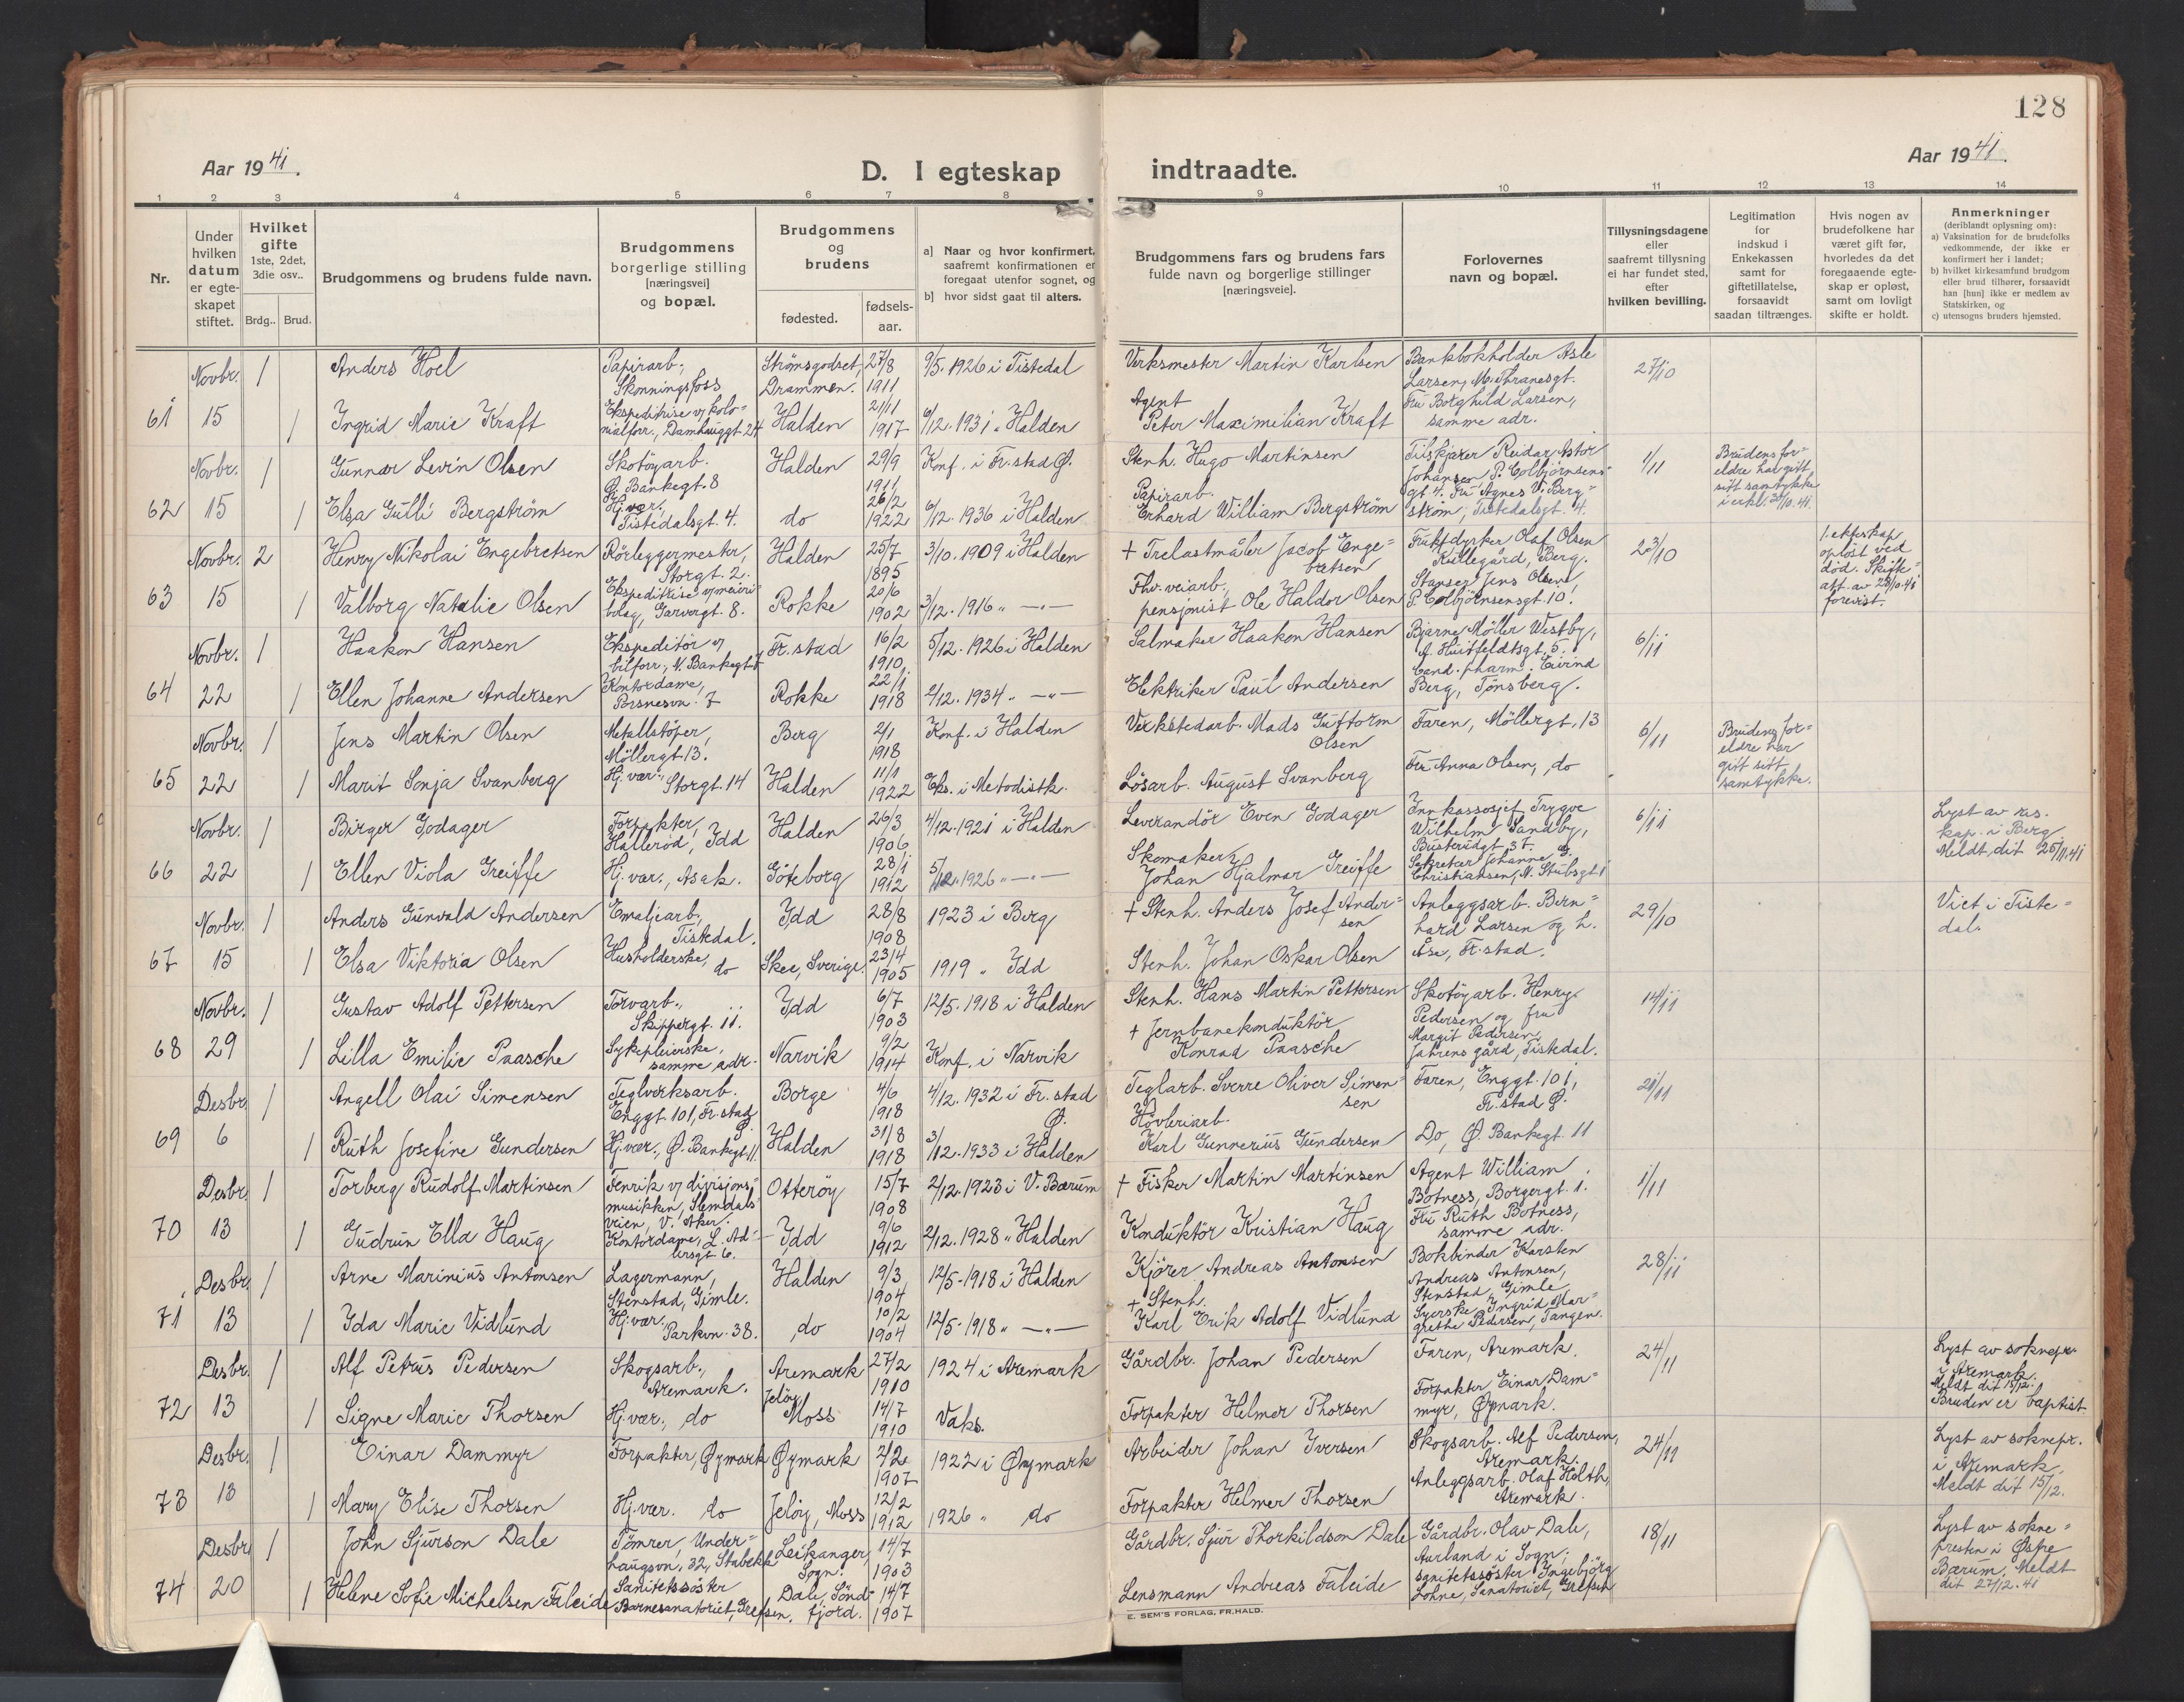 128
Aar 1941.
D. I egteskap indtraadte.
Aar 1941.
1 2 3 4 5 6 7 8 9 10 11 12 13 14
Nr.
Under hvilken datum er egteskapet stiftet.
Hvilket gifte 1ste, 2det, 3die osv..
Brdg.. Brud.
Brudgommens og brudens fulde navn.
Brudgommens borgerlige stilling [næringsvei] og bopæl.
Brudgommens og brudens
fødested.
fødselsaar.
a] Naar og hvor konfirmert, saafremt konfirmationen er foregaat utenfor sognet, og
b] hvor sidst gaat til alters.
Brudgommens fars og brudens fars fulde navn og borgerlige stillinger [næringsveie].
Forlovernes navn og bopæl.
Tillysningsdagene eller saafremt tillysning ei har fundet sted, efter hvilken bevilling.
Legitimation for indskud i Enkekassen samt for giftetillatelse, forsaavidt saadan tiltrænges.
Hvis nogen av brudefolkene har været gift før, hvorledes da det foregaaende egteskap er opløst, samt om lovligt skifte er holdt.
Anmerkninger (deriblandt oplysning om):
a) Vaksination for de brudefolks vedkommende, der ikke er konfirmert her i landet;
b) hvilket kirkesamfund brudgom eller brud tilhører, forsaavidt han [hun] ikke er medlem av Statskirken, og
c) utensogns bruders hjemsted.
Novbr. 1 Anders Hoel Papirarb., Skonningsfoss Strömsgodset, Drammen. 27/8 1911 9/5. 1926 i Tistedal Verksmester Martin Karlsen Bankbokholder Asle Larsen, M. Thranesgt. 27/10
61 15 1 Ingrid Marie Kraft Ekspeditrise v/ kolonialforr., Damhauggt. 24 Halden 21/11 1917 6/12. 1931 " Halden Agent Peter Maximilian Kraft Fru Borghild Larsen, samme adr.
Novbr. 1 Gunnar Levin Olsen Skotöyarb. Ø. Bankegt. 8 Halden 29/9 1911 Konf. i Fr.stad Ø. Stenh. Hugo Martinsen Tilskjærer Reidar Astor Johansen P. Colbjörnsensgt 4. 1/11 Brudens foreldre har gitt sitt samtykke i erkl. 30/10. 41.
62 15 1 Elsa Gulli Bergström Hj.vær. Tistedalsgt. 4. do 26/2 1922 6/12. 1936 i Halden Papirarb. Erhard William Bergström Fru Agnes V. Bergström, Tistedalsgt. 4.
Novbr. 2 Henry Nikolai Engebretsen Rörleggermester, Storgt. 2. Halden 25/7 1895 3/10. 1909 i Halden + Trelastmåler Jacob Engebretsen Fruktdyrker Olaf Olsen Kullegård, Berg. 23/10 1. ekteskap oplöst ved död. Skifteatt. av 23/10. 41 forevist.
63 15 1 Valborg Natalie Olsen Ekspeditrise v/ meieribolag, Garvergt. 8. Rokke 20/6 1902 3/12. 1916 " —"— Fhv. veiarb., pensjonist Ole Haldor Olsen Stanser Jens Olsen, P. Colbjörnsensgt. 10.
Novbr. 1 Haakon Hansen Ekspeditör v/ bilforr., N. Bankegt. Fr.stad 16/2 1910 5/12. 1926 i Halden Salmaker Haakon Hansen Bjarne Möller Westby, A. Huitfeldtsgt. 5. 6/11
64 22 1 Ellen Johanne Andersen Kontordame, 7 Rokke 22/1 1918 2/12. 1934 " —"— Elektriker Paul Andersen Cand. pharm. Eivind Berg, Tönsberg.
Novbr. 1 Jens Martin Olsen Metallstöper, Möllergt. 13. Berg 2/1 1918 Konf. i Halden Verkstedarb. Mads Guttorm Olsen Faren, Möllergt. 13 6/11 Brudens foreldre har gitt sitt samtykke.
65 22 1 Marit Sonja Svanberg Hj.vær., Storgt. 14 Halden 11/1 1922 Eks. i Metodistk. Lösarb. August Svanberg Fru Anna Olsen, do
Novbr. 1 Birger Godager Forpakter, Halleröd, Idd Halden 26/3 1906 4/12. 1921 i Halden Leverandör Even Godager Innkassosjef Trygve Wilhelm Sandby, Busterudgt 37. 6/11 Lyst av res. kap. i Berg Meldt dit 25/11. 41
66 22 1 Ellen Viola Greiffe Hj.vær., Asak. Göteborg 28/1 1912 5/12. 1926 " —"— Skomaker Johan Hjalmar Greiffe Sekretær Johanne G. Christiansen, N. Stubsgt 1
Novbr. 1 Anders Gunvald Andersen Emaljearb., Tistedal. Idd 28/8 1908 1923 i Berg + Stenh. Anders Josef Andersen Anleggsarb. Bernhard Larsen og h. Åse, Fr.stad. 29/10 Viet i Tistedal.
67 15 1 Elsa Viktoria Olsen Husholderske, do Skee, Sverige. 23/4 1905 1919 " Idd Stenh. Johan Oskar Olsen
Novbr. 1 Gustav Adolf Pettersen Torvarb., Skippergt. 11. Idd 6/7 1903 12/5. 1918 i Halden Stenh. Hans Martin Pettersen Skotöyarb. Henry Pedersen og fru Margit Pedersen, Jahrens gård, Tistedal. 14/11
68 29 1 Lilla Emilie Paasche Sykepleierske, samme adr. Narvik 9/2 1914 Konf. i Narvik + Jernbanekonduktör Konrad Paasche
Desbr. 1 Angell Olai Simensen Teglverksarb. Enggt. 101, Fr.stad Ø. Borge 4/6 1918 4/12. 1932 i Fr.stad Ø. Teglarb. Sverre Oliver Simensen Faren, Enggt. 101, Fr.stad Ø. 21/11
69 6 1 Ruth Josefine Gundersen Hj.vær., Ø. Bankegt. 11. Halden 31/8 1918 3/12. 1933 i Halden Hövleriarb. Karl Gunnerius Gundersen Do, Ø. Bankegt. 11
Desbr. 1 Torberg Rudolf Martinsen Fenrik v/ divisjonsmusikken, Slemdalsveien, V. Aker. Otteröy 15/7 1908 2/12. 1923 i V. Bærum + Fisker Martin Martinsen Agent William Botness, Borgergt. 1. 1/11
70 13 1 Gudrun Ella Haug Kontordame, L. Adlersgt 6. Idd 9/6 1912 2/12. 1928 " Halden Konduktör Kristian Haug Fru Ruth Botness, samme adr.
Desbr. 1 Arne Marinius Antonsen Lagermann, Stenstad, Gimle. Halden 9/3 1904 12/5. 1918 i Halden Kjörer Andreas Antonsen Bokbinder Karsten Andreas Antonsen, Stenstad, Gimle 28/11
71 13 1 Ida Marie Vidlund Hj.vær. Parkvn. 38. do 10/2 1904 12/5. 1918 " —"— + Stenh. Karl Erik Adolf Vidlund Syerske Ingrid Margrethe Pedersen, Tangen.
Desbr. 1 Alf Petrus Pedersen Skogsarb., Aremark. Aremark 27/2 1910 1924 i Aremark Gårdbr. Johan Pedersen Faren, Aremark. 24/11 Lyst av soknepr. i Aremark. Meldt dit 15/12. Bruden er baptist
72 13 1 Signe Marie Thorsen Hj.vær., do Jelöy Moss 14/7 1910 Vaks. Forpakter Helmer Thorsen Forpakter Einar Dammyr, Øymark.
Desbr. 1 Einar Dammyr Forpakter, Øymark Øymark 2/2 1907 1922 i Øymark Arbeider Johan Iversen Skogsarb. Alf Pedersen, Aremark. 24/11 Lyst av soknepr. i Aremark. Meldt dit 15/12.
73 13 1 Mary Elise Thorsen Hj.vær. do Jelöy, Moss 12/2 1912 1926 " do Forpakter Helmer Thorsen Anleggsarb. Olaf Holth, Aremark.
Desbr. 1 John Sjurson Dale Tömrer, Underhaugsvn. 32, Stabekk Leikanger, Sogn. 14/7 1903 Gårdbr. Sjur Thorkildson Dale Gårdbr. Olav Dale, Aurland i Sogn; 18/11 Lyst av soknepresten i Østre Bærum. Meldt dit 27/12. 41
74 20 1 Helene Sofie Michelsen Faleide Sanitetssöster Barnesanatoriet, Grefsen. Dale, Söndfjord. 14/7 1907 Lensmann Andreas Faleide sanitetssöster Ingebjörg Lohne, Sanatoriet, Grefsen
E. SEM'S FORLAG, FR.HALD.